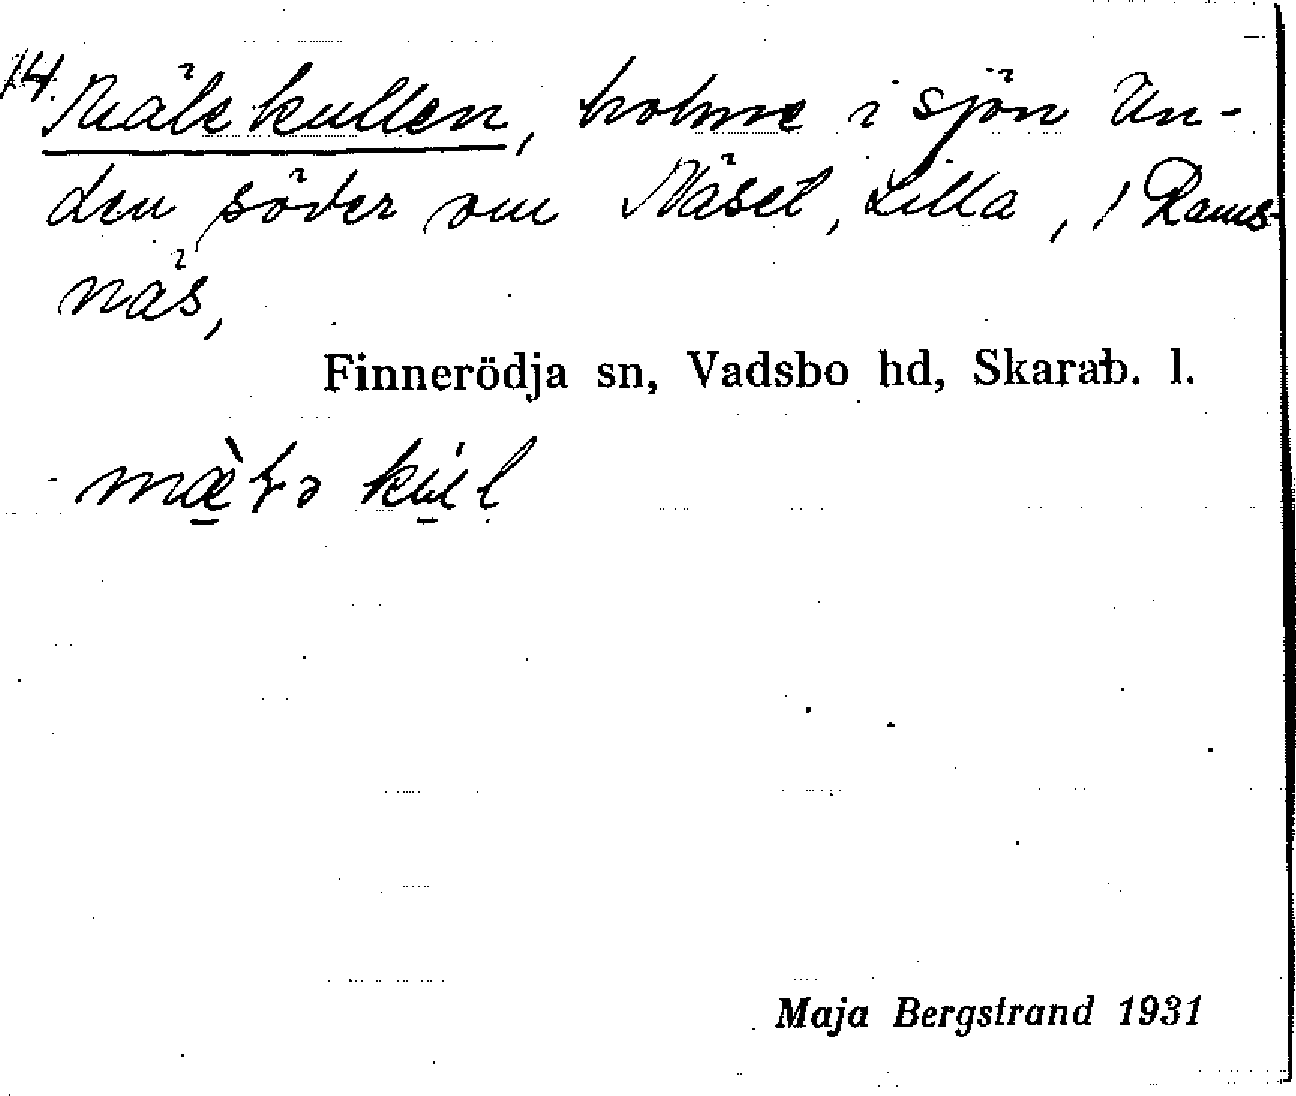 14.
Mälekullen, holme i sjön Un-
den söder om Näset, Lilla, / Rams-
näs,
Finnerödja sn, Vadsbo hd, Skarab. l.
Maja Bergstrand 1931